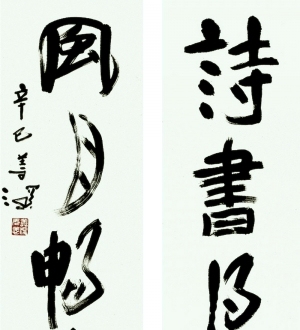 詩書
風月暢
辛巳善深